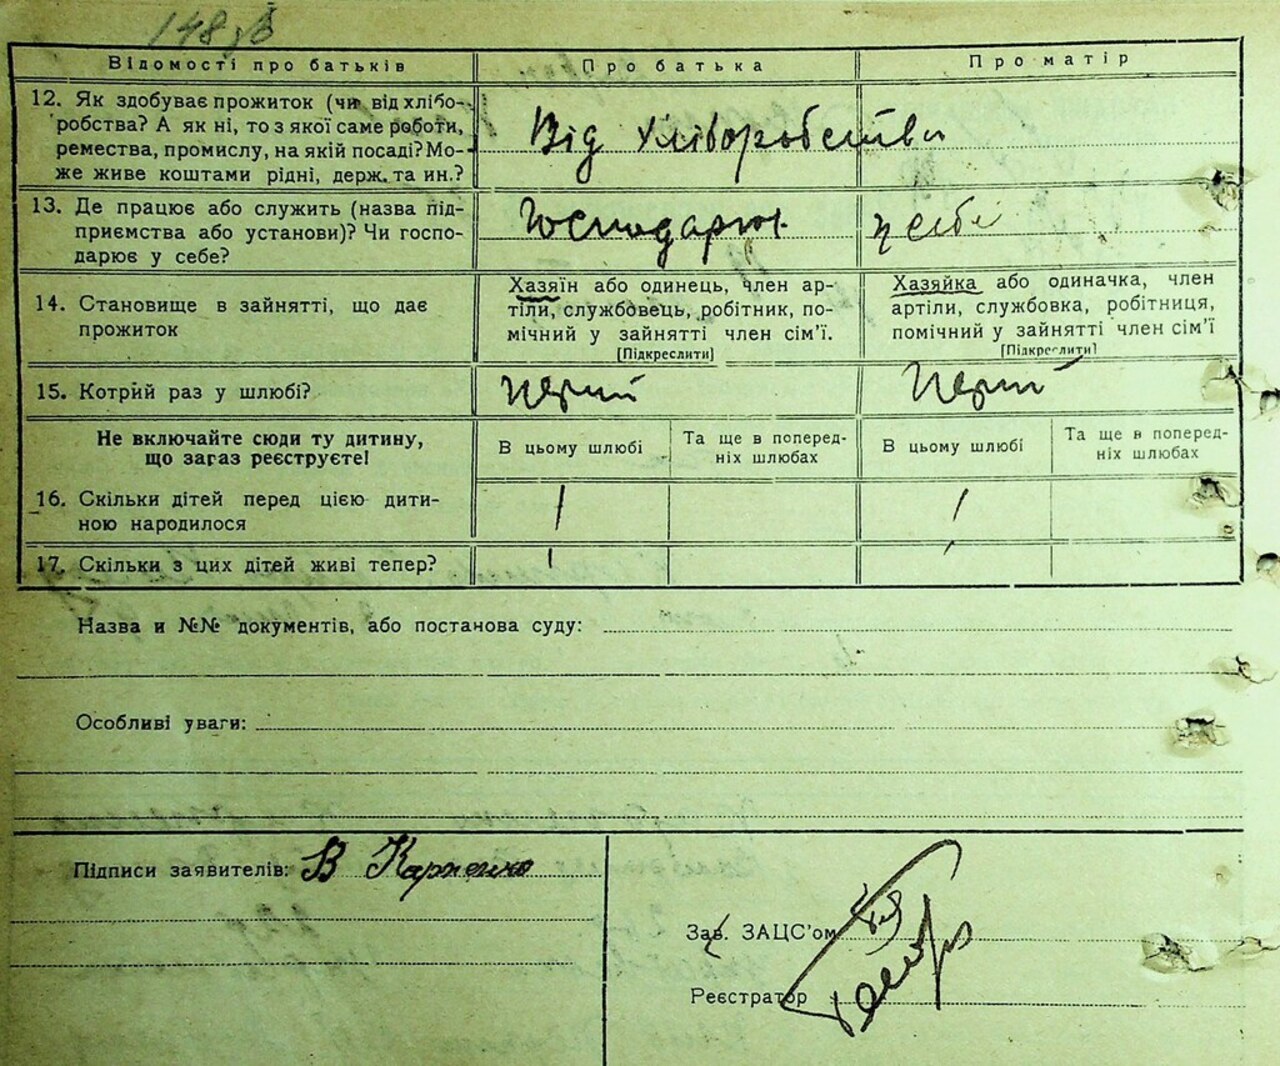 148 зв
Відомості про батьків
Про батька
Про матір
12. Як здобуває прожиток (чи від хлібо-
робства? А як ні, то з якої саме роботи,
ремества, промислу, на якій посаді? Мо-
же живе коштами рідні, держ. та ин.?
Від хліборобства
13. Де працює або служить (назва під-
приємства або установи)? Чи госпо-
дарює у себе?
Господарює
у себе
14. Становище в зайнятті, що дає
прожиток
Хазяїн або одинець, член ар-
тіли, службовець, робітник, по-
мічний у зайнятті член сім'ї.
[Підкреслити]
Хазяйка або одиначка, член
артіли, службовка, робітниця,
помічний у зайнятті член сім'ї
[Підкреслити]
15. Котрий раз у шлюбі?
Перший
Перший
Не включайте сюди ту дитину,
що загаз реєструєте!
В цьому шлюбі
Та ще в поперед-
ніх шлюбах
В цьому шлюбі
Та ще в поперед-
ніх шлюбах
16. Скільки дітей перед цією дити-
ною народилося
1
1
17. Скільки з цих дітей живі тепер?
1
1
Назва и №№ документів, або постанова суду:
Особливі уваги:
Підписи заявителів: В Карпенко
Зав. ЗАЦС'ом
Реєстратор